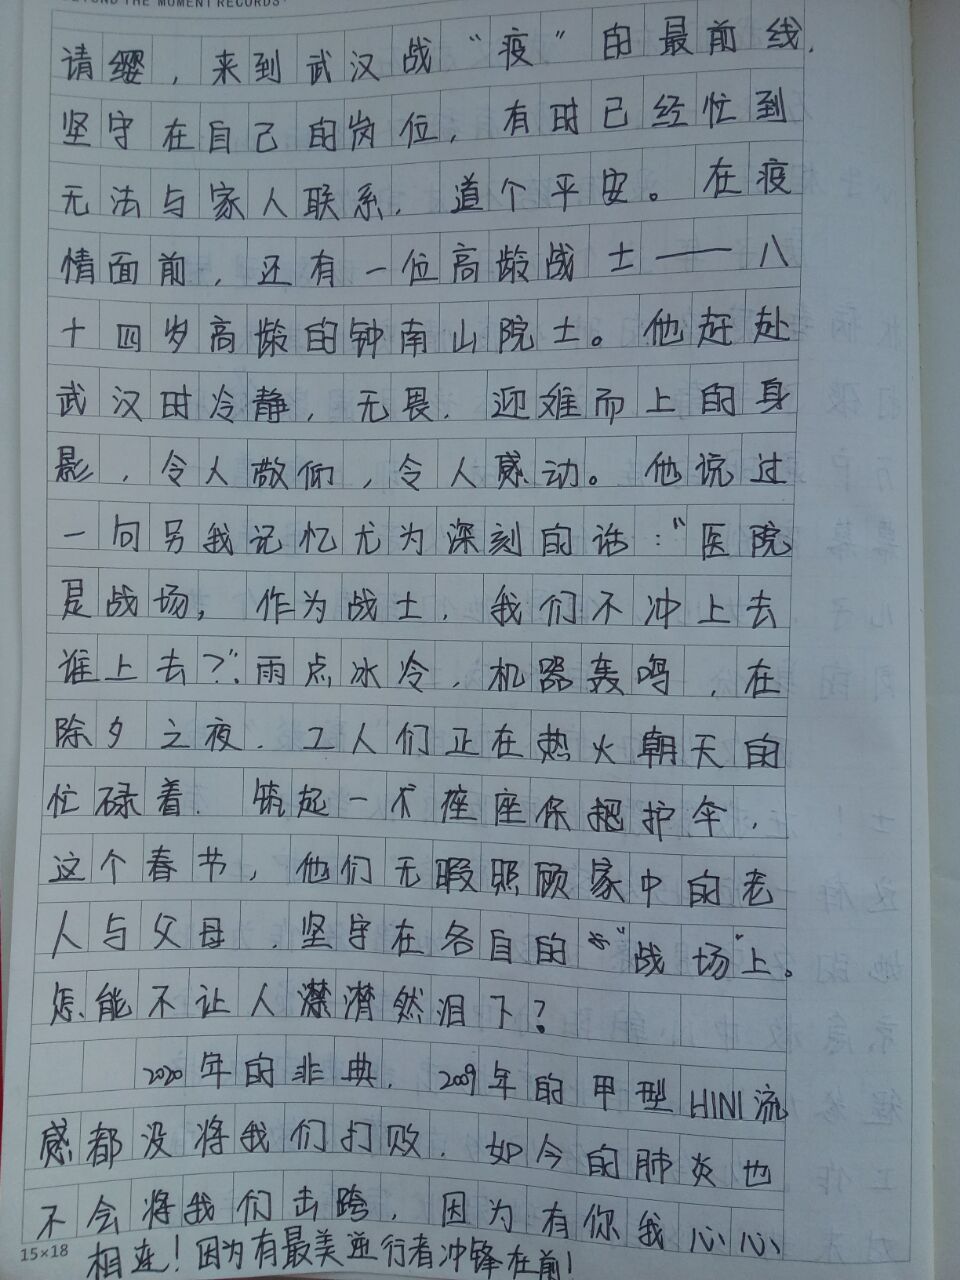 BEYOND THE MOMENT RECORDS
请缨，来到武汉战“疫”的最前线，
坚守在自己的岗位，有时已经忙到
无法与家人联系，道个平安。在疫
情面前，还有一位高龄战士——八
十四岁高龄的钟南山院士。他赶赴
武汉时冷静，无畏，迎难而上的身
影，令人敬仰，令人感动。他说过
一句另我记忆尤为深刻的话：“医院
是战场，作为战士，我们不冲上去
谁上去？”雨点冰冷，机器轰鸣，在
除夕之夜，工人们正在热火朝天的
忙碌着，筑起一座座保护伞，
这个春节，他们无暇照顾家中的老
人与父母，坚守在各自的“战场”上。
怎能不让人潸然泪下？
2020年的非典，2009年的甲型H1N1流
感都没将我们打败，如今的肺炎也
不会将我们击跨，因为有你我心心
15×18 相连！因为有最美逆行者冲锋在前！